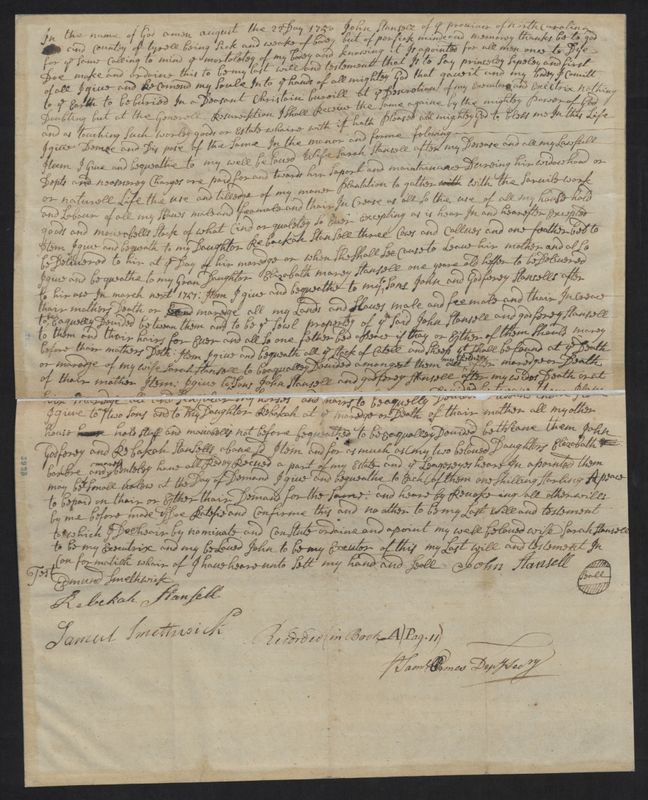 In the name of God amen august the 2 Day 1750 John Stansell of ye province of north Carolina
and country of tyrell being Sick and weeke of body but of parfick minde and memorey thanks be to god
for ye same Calling to mind ye mortolatey of my body and knowing it is apointed for all men once to Dye
Doe make and ordaine this to be my last will and testement that is to Say prinsebley and first
of all I give and Recomend my Soule Into ye hands of all mighty God that gave it and my body I Comitt
to ye Earth to be buried In a Deasant Christain buriell at ye Descretion of my Executor and Executrix nothing
Doubting but at the Generall Resurection I Shall Receive the Same againe by the mighty Power of God
and as touching Such worldy goods or Estate whaire with it hath Pleased all mighty God to bless me In this Life
I give Demise and Dis pose of the Same In the maner and forme folowing
Item I Give and bequeathe to my well beloved Wife Sarah Stansell after my Decease and all my Lawfull
Depts and necesarey Charges are paid for and towards her Suport and maintainance Dureing hir widowhood or
or naturell Life the use and tillidge of my maner Plantation to gather with the Sarvile work
and Labour of all my Slaves male and feamale and thair In Crease as all So the use of all my house hold
goods and moveabells Stock of what Cind or qualatey So Ever Excepting as is hear In and hereafter Excepted
Item I give and bequeath to my Daughter Rebackah Stansell three Cows and Callves and one feather bed to
be Delivered to hir at ye Day of hir marege or when She Shall See Cause to Leave hir mother and al So
I give and be queathe to my Gran Daughter Elizabeth marey Stansell one yeare old heffer to be Delivered
to hir use In march next 1751: Item I give and bequeathe to my Sons John and Godfrey Stansells after
thair mothers Death or marege all my Lands and Slaves male and feemale and thair In Crease
to be Equelley Devided between them and to be ye Sowl property of ye Said John Stansell and godfrey Stansell
to them and thair hairs for Ever and all So one fether bed apeace if thay or Eyther of them Should marey
before thair mothers Deth: Item I give and bequeath all ye Stock of Catell and Sheep yt Shall be found at ye Death
or marage of my wife Sarah Stansell to be equalley Devided amongest them all after marege or Death
of thair mother Item: I give to Sons John Stansell and godfrey Stansell after my wifes Death or at
hir marage all my horses and mares to be aquelly Devided
I give to two Sons and to my Daughter Rebekah at ye marege or Death of thair mother all my other
house hold Stuff and moveabells not before bequeathed to be Equelley Devided betweene them John
Godfrey and Rebekah Stansells above sd Item and for as much as my two beloved Daughters Elizabeth
barbre and marey berkeley have all Redey Receved a part of my Estate
may be Small at the Day of Demand I give and bequeathe to Each of them one Shilling Starling A peace
to be paid on thair or Eyther thair Demand for the Same: and heare by Revokeing all other willes
by me before made I Doe Ratefie and Confirme this and no other to be my Last will and testement
to which I Doe heair by nominate and Constitute ordaine and apoint my well beloved wife Sarah Stansell
to be my Executrix and my beloved John to be my Executor of this my Last will and testement In
Con for matión whair of I have heare unto Sett my hand and Seall John Stansell
Seall
Test
Edmund Smethwick
Rebekah Stansell
Samuel Smethwick
Recorded in Book A) Pag. 11)
Saml Ormes Depty Secry